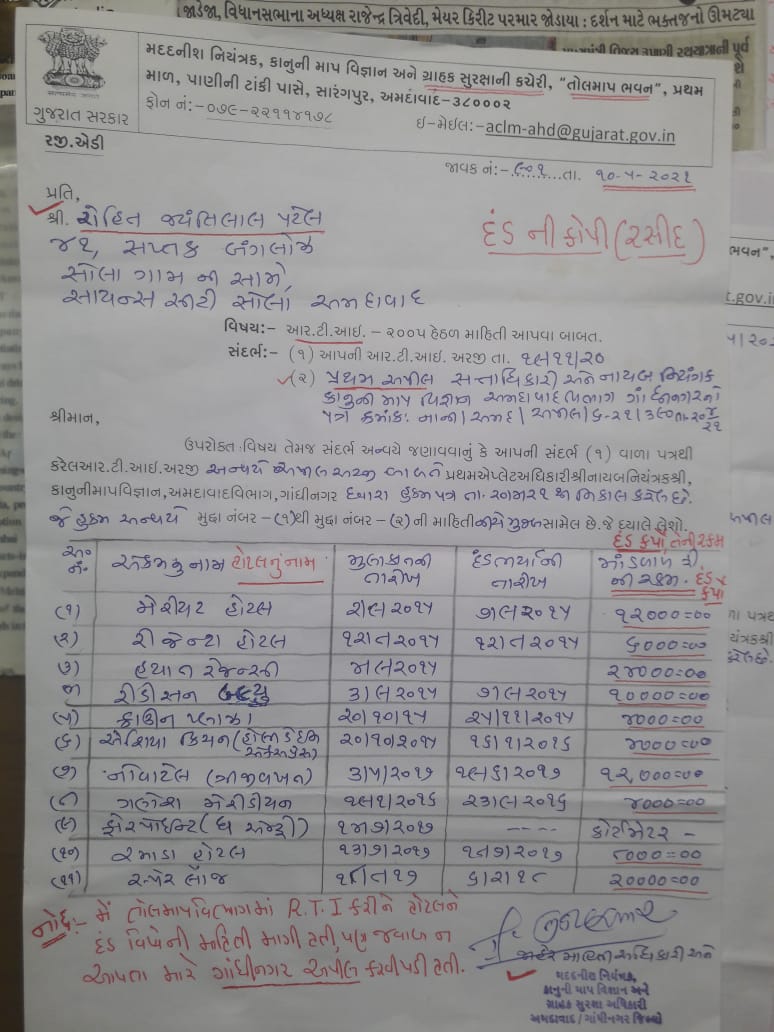 જાડેજા, વિધાનસભાના અધ્યક્ષ રાજેન્દ્ર ત્રિવેદી, મેયર કિરીટ પરમાર જોડાયા : દર્શન માટે ભક્તજનો ઊમટ્યા
મદદનીશ નિયંત્રક, કાનુની માપ વિજ્ઞાન અને ગ્રાહક સુરક્ષાની કચેરી, "તોલમાપ ભવન", પ્રથમ
માળ, પાણીની ટાંકી પાસે, સારંગપુર, અમદાવાદ-૩૮૦૦૦૨
ફોન નં:-૦૭૯-૨૨૧૧૪૧૭૮ ઇ-મેઇલ:-aclm-ahd@gujarat.gov.in
ગુજરાત સરકાર
રજી.એડી
જાવક નં:- ૯૦૧ તા. ૧૦-૫-૨૦૨૧
પ્રતિ,
શ્રી. રોહિત જયંતિલાલ પટેલ
દંડ ની કોપી (રસીદ)
૪૧, સપ્તક બંગલોઝ
સોલા ગામ ની સામે,
સાયન્સ સીટી સોલા અમદાવાદ
વિષય:- આર.ટી.આઇ. - ૨૦૦૫ હેઠળ માહિતી આપવા બાબત.
સંદર્ભ:- (૧) આપની આર.ટી.આઇ. અરજી તા. ૧૯।૧૧।૨૦
(૨) પ્રથમ અપીલ સત્તાધિકારી અને નાયબ નિયંત્રક
કાનુની માપ વિજ્ઞાન અમદાવાદ વિભાગ ગાંધીનગરનો
પત્ર ક્રમાંક:
શ્રીમાન,
ઉપરોક્ત વિષય તેમજ સંદર્ભ અન્વયે જણાવવાનું કે આપની સંદર્ભ (૧) વાળા પત્રથી
કરેલઆર.ટી.આઇ.અરજી અન્વયે અપીલ અરજી બાબતે પ્રથમએપ્લેટઅધિકારીશ્રીનાયબનિયંત્રકશ્રી,
કાનુનીમાપવિજ્ઞાન,અમદાવાદવિભાગ,ગાંધીનગર દ્વારા હુકમ પત્ર તા. થી નિકાલ કરેલ છે.
જે હુકમ અન્વયે મુદ્દા નંબર -(૧)થી મુદ્દા નંબર -(૨)ની માહિતી નીચે મુજબ સામેલ છે.જે ધ્યાને લેશો.
દંડ કર્યા તેની રકમ
અ.નં. એકમનું નામ હોટલનું નામ મુલાકાતની તારીખ દંડ ભર્યાની તારીખ માંડવાળ ફી ની રકમ. દંડ કર્યા
(૧) મેરીયટ હોટલ ૨।૯।૨૦૧૫ ૭।૯।૨૦૧૫ ૧૨૦૦૦=૦૦
(૨) રીજેન્ટા હોટલ ૧૨।૮।૨૦૧૫ ૧૨।૮।૨૦૧૫ ૬૦૦૦=૦૦
૩) હયાત રેજન્સી ૪।૯।૨૦૧૫ ૨૪૦૦૦=૦૦
રેડીસન બ્લ્યુ ૩।૯।૨૦૧૫ ૭।૯।૨૦૧૫ ૧૦૦૦૦=૦૦
(૫) ક્રાઉન પ્લાઝા ૨૦।૧૦।૧૫ ૨૫।૧૧।૨૦૧૫ ૪૦૦૦=૦૦
(૬) એશિયા કિચન ૨૦।૧૦।૨૦૧૫ ૧૬।૧।૨૦૧૬ ૪૦૦૦=૦૦
(૭) નોવોટેલ ૩।૫।૨૦૧૭ ૧૯।૬।૨૦૧૭ ૧૨,૦૦૦=૦૦
(૮) મેરીડીયન ૧૯।૧।૨૦૧૬ ૨૩।૯।૨૦૧૬ ૪૦૦૦=૦૦
(૯) ફોરપોઇન્ટ ૧૪।૭।૨૦૧૭ ---- કોર્ટમેટર -
(૧૦) રમાડા હોટલ ૧૩।૭।૨૦૧૭ ૧૮।૭।૨૦૧૭ ૮૦૦૦=૦૦
(૧૧) લોંજ ૬।૨।૧૮ ૨૦૦૦૦=૦૦
નોંધ:- મેં તોલમાપ વિભાગમાં R.T.I કરીને હોટલને
દંડ વિષેની માહિતી માગી હતી, પણ જવાબ ન
આપતા મારે ગાંધીનગર અપીલ કરવી પડી હતી.
જાહેર માહિતી અધિકારી અને
મદદનીશ નિયંત્રક,
કાનુની માપ વિજ્ઞાન અને
ગ્રાહક સુરક્ષા અધિકારી
અમદાવાદ / ગાંધીનગર જિલ્લો